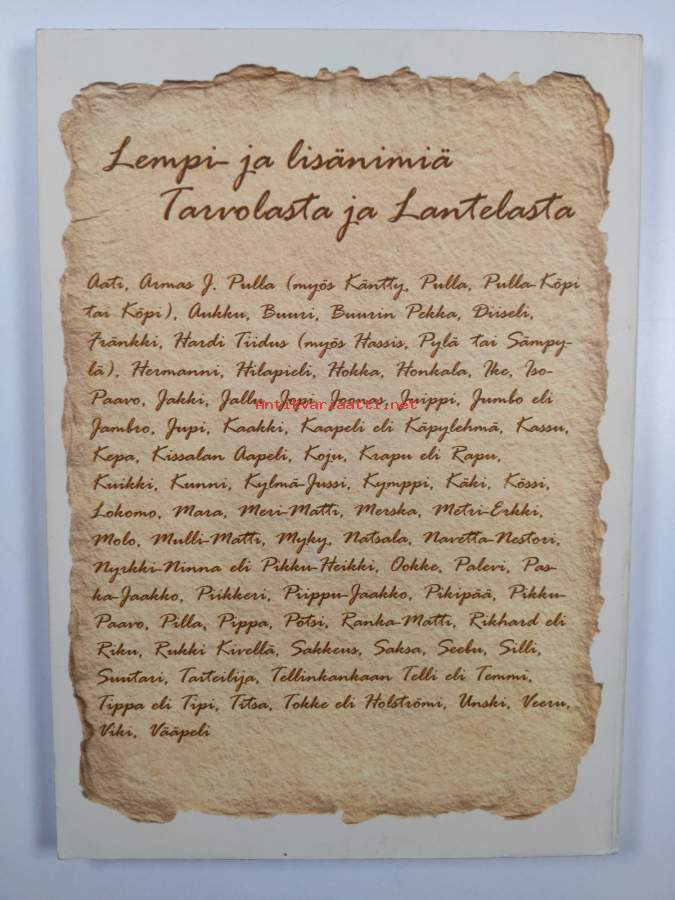 Lempi- ja lisänimiä
Tarvolasta ja Lantelasta
Aati, Armas J. Pulla (myös Käntty, Pulla, Pulla-Köpi
tai Köpi), Aukku, Buuri, Buurin Pekka, Diiseli,
Fränkki, Hardi Tiidus (myös Hassis, Pylä tai Sämpy-
lä), Hermanni, Hilapieli, Hokka, Honkala, Ike, Iso-
Paavo, Jakki, Jallu, Jopi, Joonas, Juippi, Jumbo eli
Antikvariaatti.net
Jambro, Jupi, Kaakki, Kaapeli eli Käpylehmä, Kassu,
Kepa, Kissalan Aapeli, Koju, Krapu eli Rapu,
Kuikki, Kunni, Kylmä-Jussi, Kymppi, Käki, Kössi,
Lokomo, Mara, Meri-Matti, Merska, Metri-Erkki,
Molo, Mulli-Matti, Myky, Natsala, Navetta-Nestori,
Nyrkki-Ninna eli Pikku-Heikki, Ookke, Palevi, Pas-
ka-Jaakko, Piikkeri, Piippu-Jaakko, Pikipää, Pikku-
Paavo, Pilla, Pippa, Potsi, Ranka-Matti, Rikhard eli
Riku, Rukki Kivellä, Sakkeus, Saksa, Seelu, Silli,
Suutari, Taiteilija, Tellinkankaan Telli eli Temmi,
Tippa eli Tipi, Titsa, Tokke eli Holströmi, Unski, Veeru,
Viki, Vääpeli